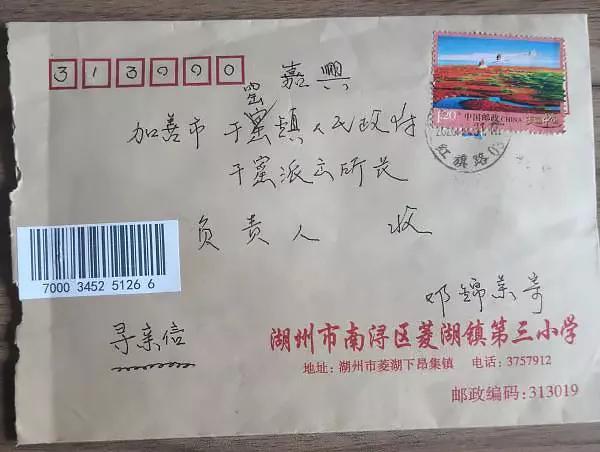 313000
嘉興
窑
加善市 干窰镇人民政府
干窰派出所长
负责人 收
1.20 中国邮政 CHINA
红旗路
7000 3452 5126 6
寻亲信
邓锦荣寄
湖州市南浔区菱湖镇第三小学
地址：湖州市菱湖下昂集镇 电话：3757912
邮政编码：313019